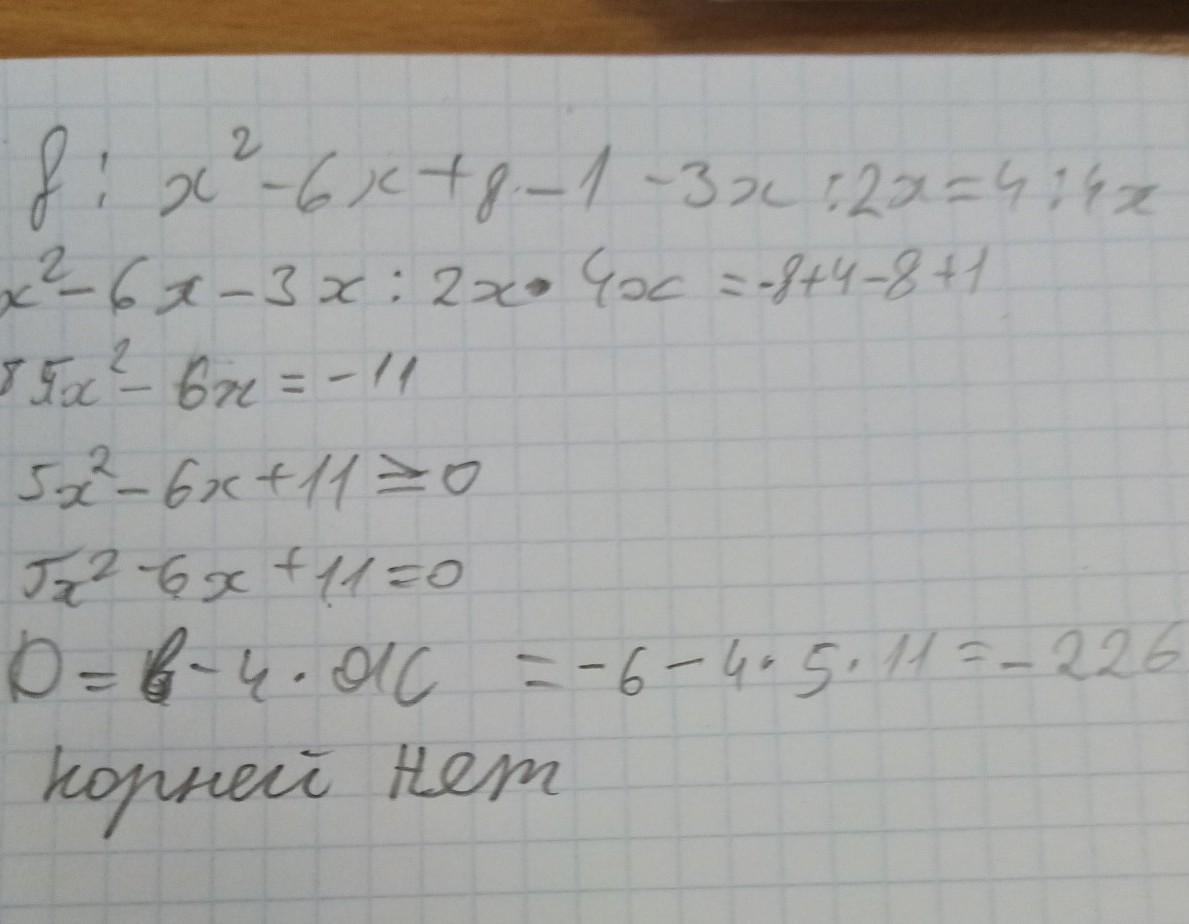 8: x² - 6x + 8 - 1 - 3x : 2x = 4 : 4x
x² - 6x - 3x : 2x · 4x = -8 + 4 - 8 + 1
5x² - 6x = -11
5x² - 6x + 11 ≥ 0
5x² - 6x + 11 = 0
D = b - 4 · ac = -6 - 4 · 5 · 11 = -226
корней нет